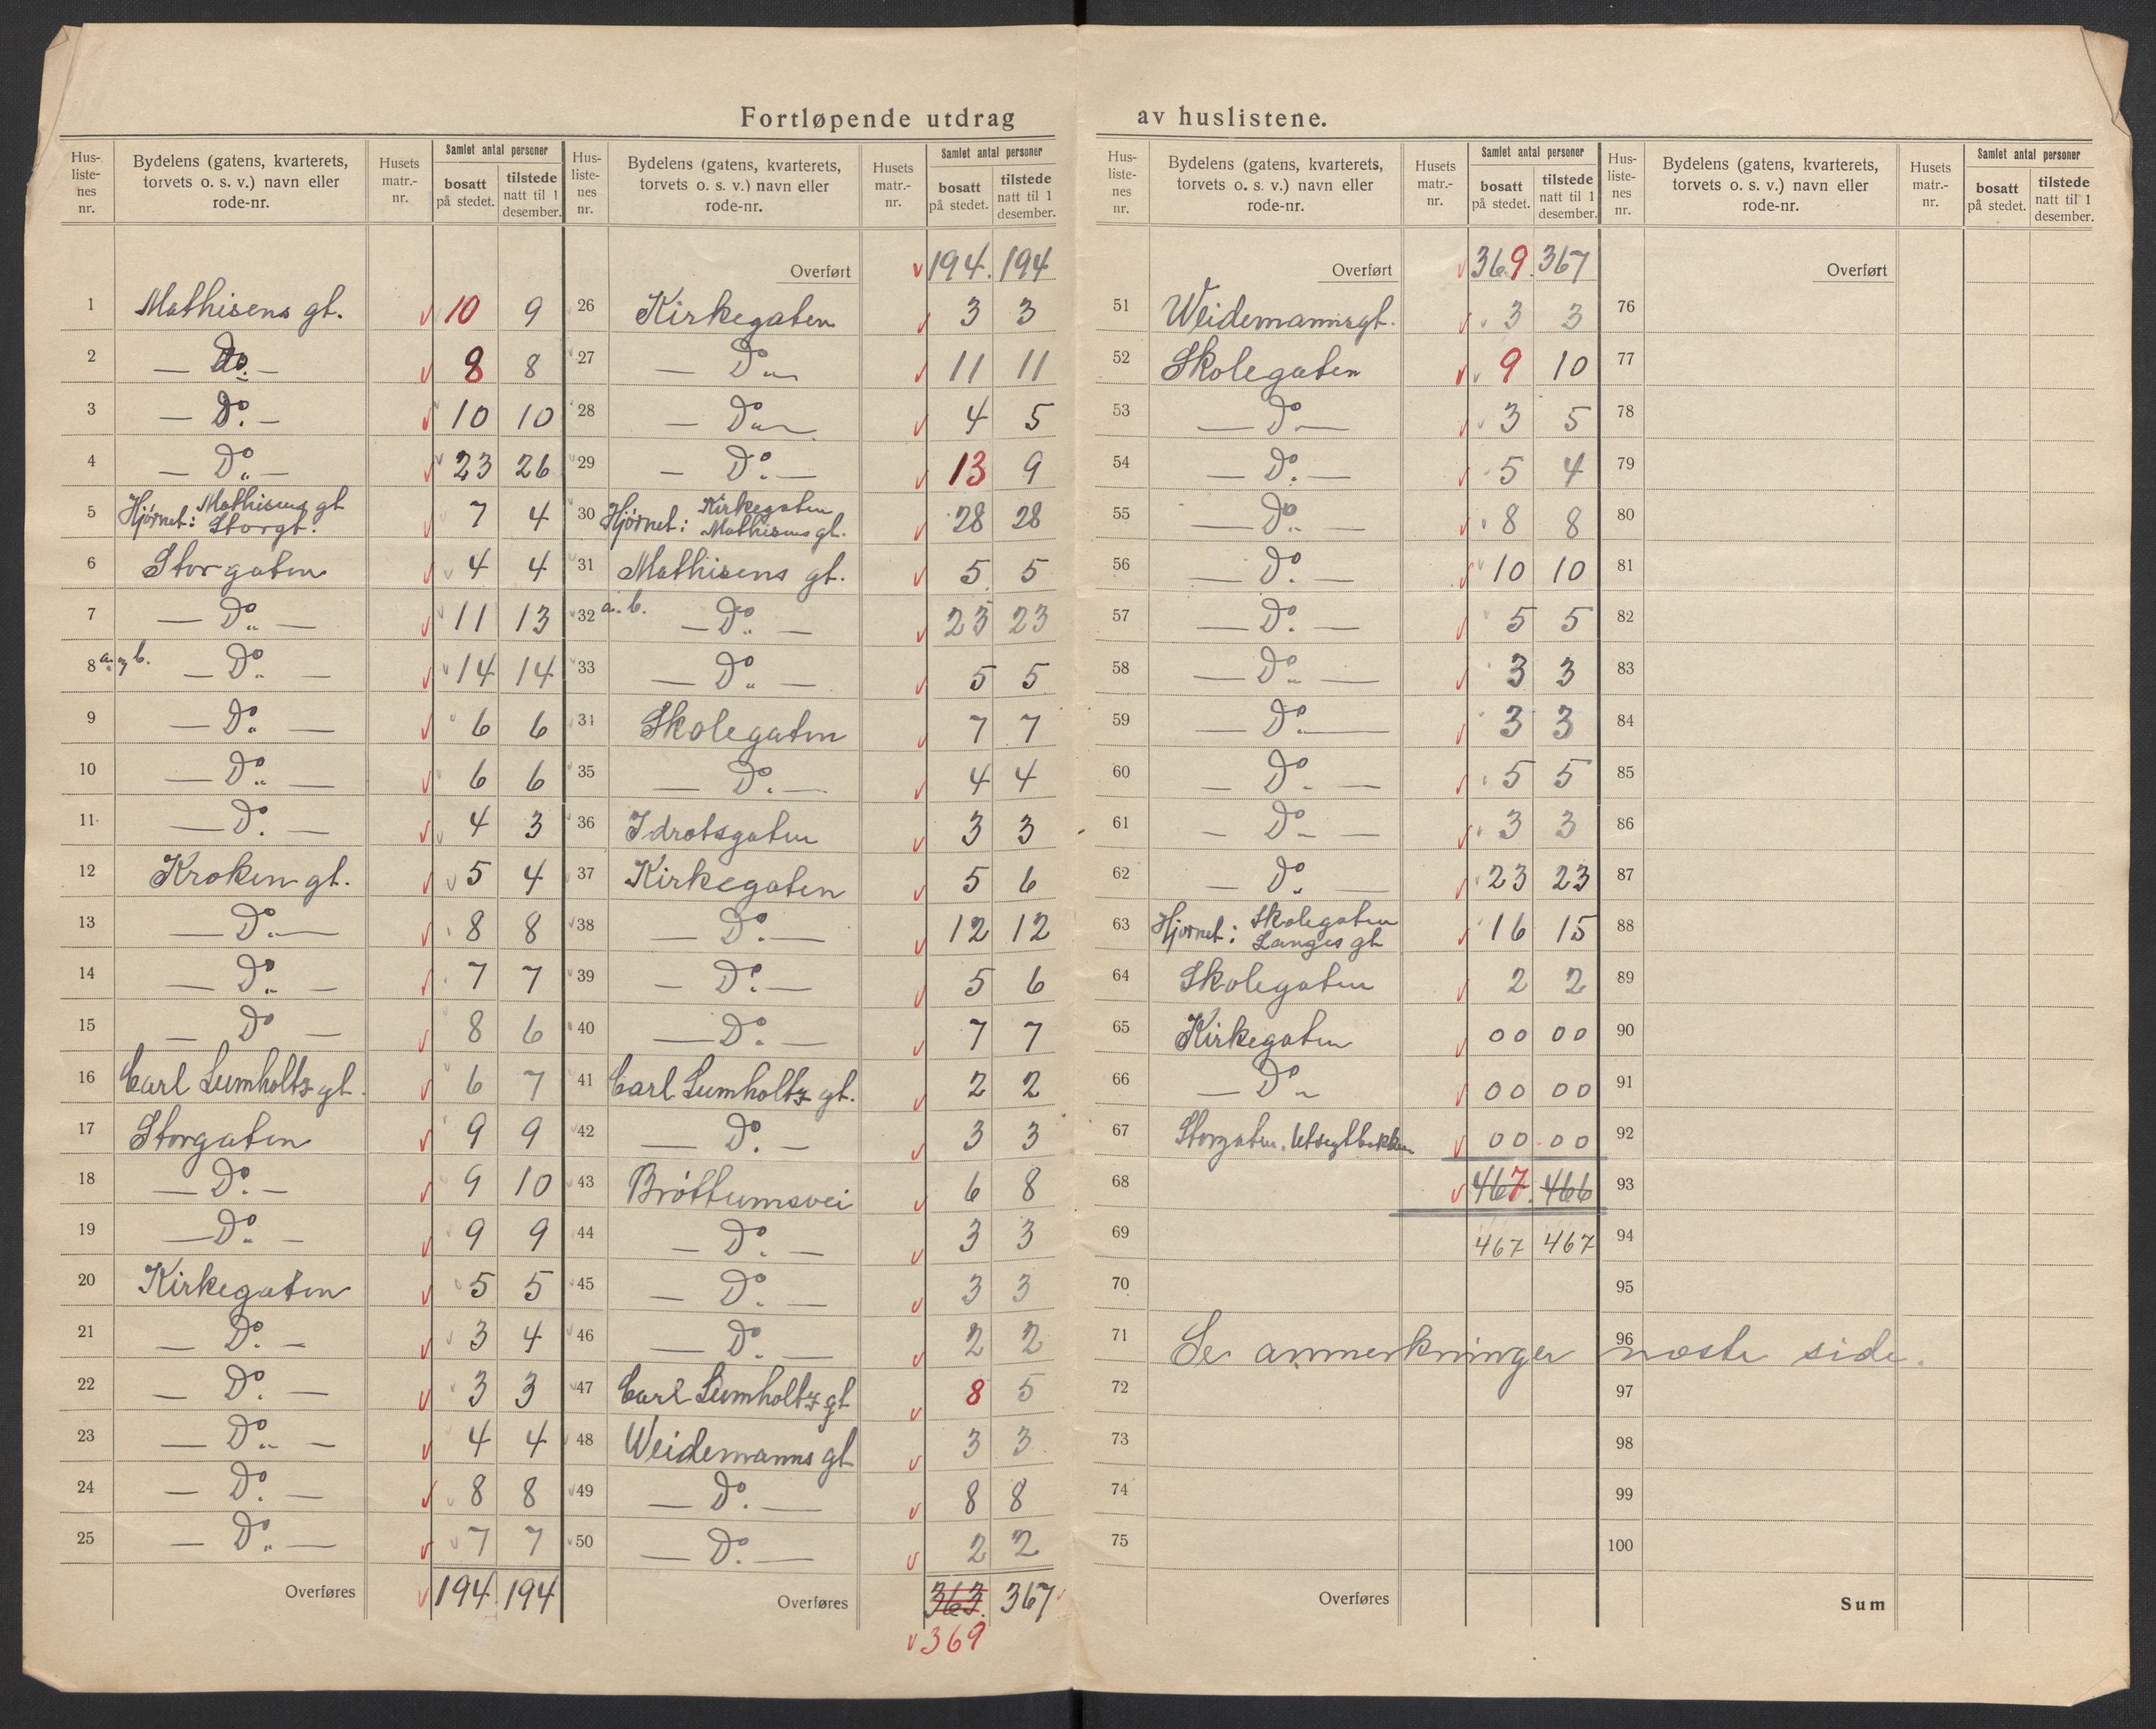 Fortløpende utdrag av huslistene.
Hus-listenes nr. | Bydelens (gatens, kvarterets, torvets o. s. v.) navn eller rode-nr. | Husets matr.-nr. | Samlet antal personer | bosatt på stedet. | tilstede natt til 1 desember.
1 Mathisens gt. 10 9
2 — Do. — 8 8
3 — Do. — 10 10
4 — Do. — 23 26
5 Hjørnet: Mathisens gt Storgt. 7 4
6 Storgaten 4 4
7 — Do. — 11 13
8 a. og b. — Do. — 14 14
9 — Do. — 6 6
10 — Do. — 6 6
11 — Do. — 4 3
12 Kroken gt. 5 4
13 — Do. — 8 8
14 — Do. — 7 7
15 — Do — 8 6
16 Carl Lumholtz gt. 6 7
17 Storgaten 9 9
18 — Do. — 9 10
19 — Do. — 9 9
20 Kirkegaten 5 5
21 — Do. — 3 4
22 — Do. — 3 3
23 — Do. — 4 4
24 — Do. — 8 8
25 — Do. — 7 7
Overføres 194 194
Hus-listenes nr. | Bydelens (gatens, kvarterets, torvets o. s. v.) navn eller rode-nr. | Husets matr.-nr. | Samlet antal personer | bosatt på stedet. | tilstede natt til 1 desember.
Overført 194. 194
26 Kirkegaten 3 3
27 — Do. — 11 11
28 — Do. — 4 5
29 — Do. — 13 9
30 Hjørnet: Kirkegaten Mathisens gt. 28 28
31 Mathisens gt. 5 5
32 a. b. — Do. — 23 23
33 — Do. — 5 5
31 Skolegaten 7 7
35 — Do. — 4 4
36 Idrotsgaten 3 3
37 Kirkegaten 5 6
38 — Do. — 12 12
39 — Do. — 5 6
40 — Do. — 7 7
41 Carl Lumholtz gt. 2 2
42 — Do. — 3 3
43 Brøttumsvei 6 8
44 — Do. — 3 3
45 — Do. — 3 3
46 — Do. — 2 2
47 Carl Lumholtz gt 8 5
48 Weidemanns gt 3 3
49 — Do. — 8 8
50 — Do. — 2 2
Overføres 363. 367
369
Hus-listenes nr. | Bydelens (gatens, kvarterets, torvets o. s. v.) navn eller rode-nr. | Husets matr.-nr. | Samlet antal personer | bosatt på stedet. | tilstede natt til 1 desember.
Overført 369. 367
51 Weidemannsgt. 3 3
52 Skolegaten 9 10
53 — Do — 3 5
54 — Do. — 5 4
55 — Do. — 8 8
56 — Do. — 10 10
57 — Do. — 5 5
58 — Do. — 3 3
59 — Do. — 3 3
60 — Do. — 5 5
61 — Do. — 3 3
62 — Do. — 23 23
63 Hjørnet: Skolegaten Langes gt 16 15
64 Skolegaten 2 2
65 Kirkegaten 00 00
66 — Do. 00 00
67 Storgaten. 00 00
68 467. 466
69 467 467
70
71 Se anmerkninger næste side.
72
73
74
75
Overføres
Hus-listenes nr. | Bydelens (gatens, kvarterets, torvets o. s. v.) navn eller rode-nr. | Husets matr.-nr. | Samlet antal personer | bosatt på stedet. | tilstede natt til 1 desember.
Overført
76
77
78
79
80
81
82
83
84
85
86
87
88
89
90
91
92
93
94
95
96
97
98
99
100
Sum